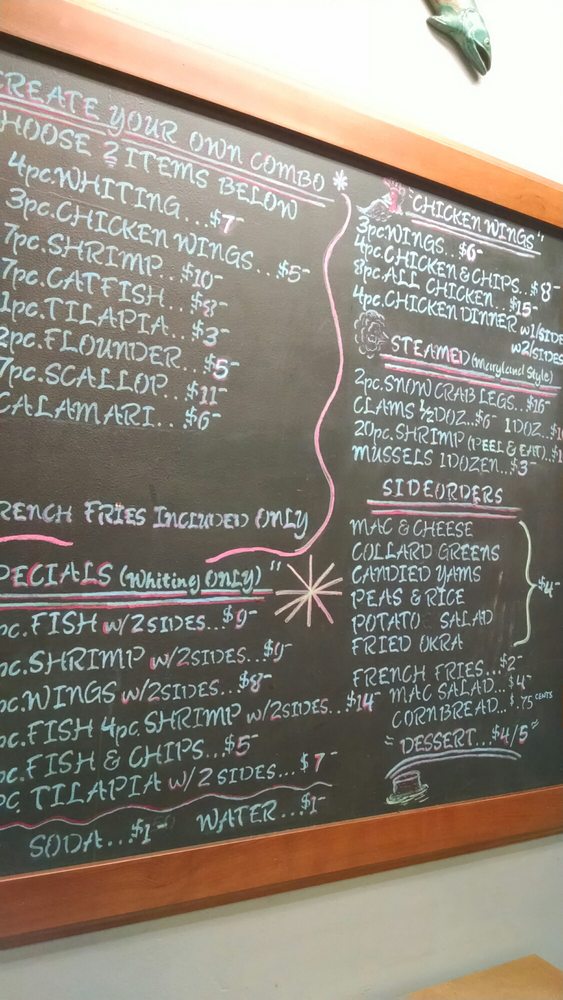 CREATE YOUR OWN COMBO
CHOOSE 2 ITEMS BELOW
4pc.WHITING...$7-
3pc.CHICKEN WINGS...$5-
7pc.SHRIMP...$10-
7pc.CATFISH...$8-
1pc.TILAPIA...$3-
2pc.FLOUNDER...$5-
7pc.SCALLOP...$11-
CALAMARI...$6-
FRENCH FRIES INCLUDED ONLY
SPECIALS (Whiting ONLY)"
pc.FISH w/2SIDES...$9-
pc.SHRIMP w/2SIDES...$9-
pc.WINGS w/2SIDES...$8-
pc.FISH 4pc SHRIMP w/2SIDES...$14-
pc.FISH & CHIPS...$5-
pc. TILAPIA w/2 SIDES...$7-
SODA...$1- WATER...$1-
"CHICKEN WINGS"
3pcWINGS...$6-
4pc.CHICKEN & CHIPS...$8-
8pc.ALL CHICKEN...$15-
4pc.CHICKEN DINNER w1/SIDE
w2/SIDES
STEAMED (Maryland Style)
2pc.SNOW CRAB LEGS...$16-
CLAMS ½DOZ...$6- 1DOZ...
20pc.SHRIMP (PEEL & EAT)...
MUSSELS 1DOZEN...$3-
SIDEORDERS
MAC & CHEESE
COLLARD GREENS
CANDIED YAMS
PEAS & RICE
POTATO SALAD
FRIED OKRA
$4-
FRENCH FRIES...$2-
MAC SALAD...$4-
CORNBREAD...$.75 CENTS
"DESSERT...$4/5"